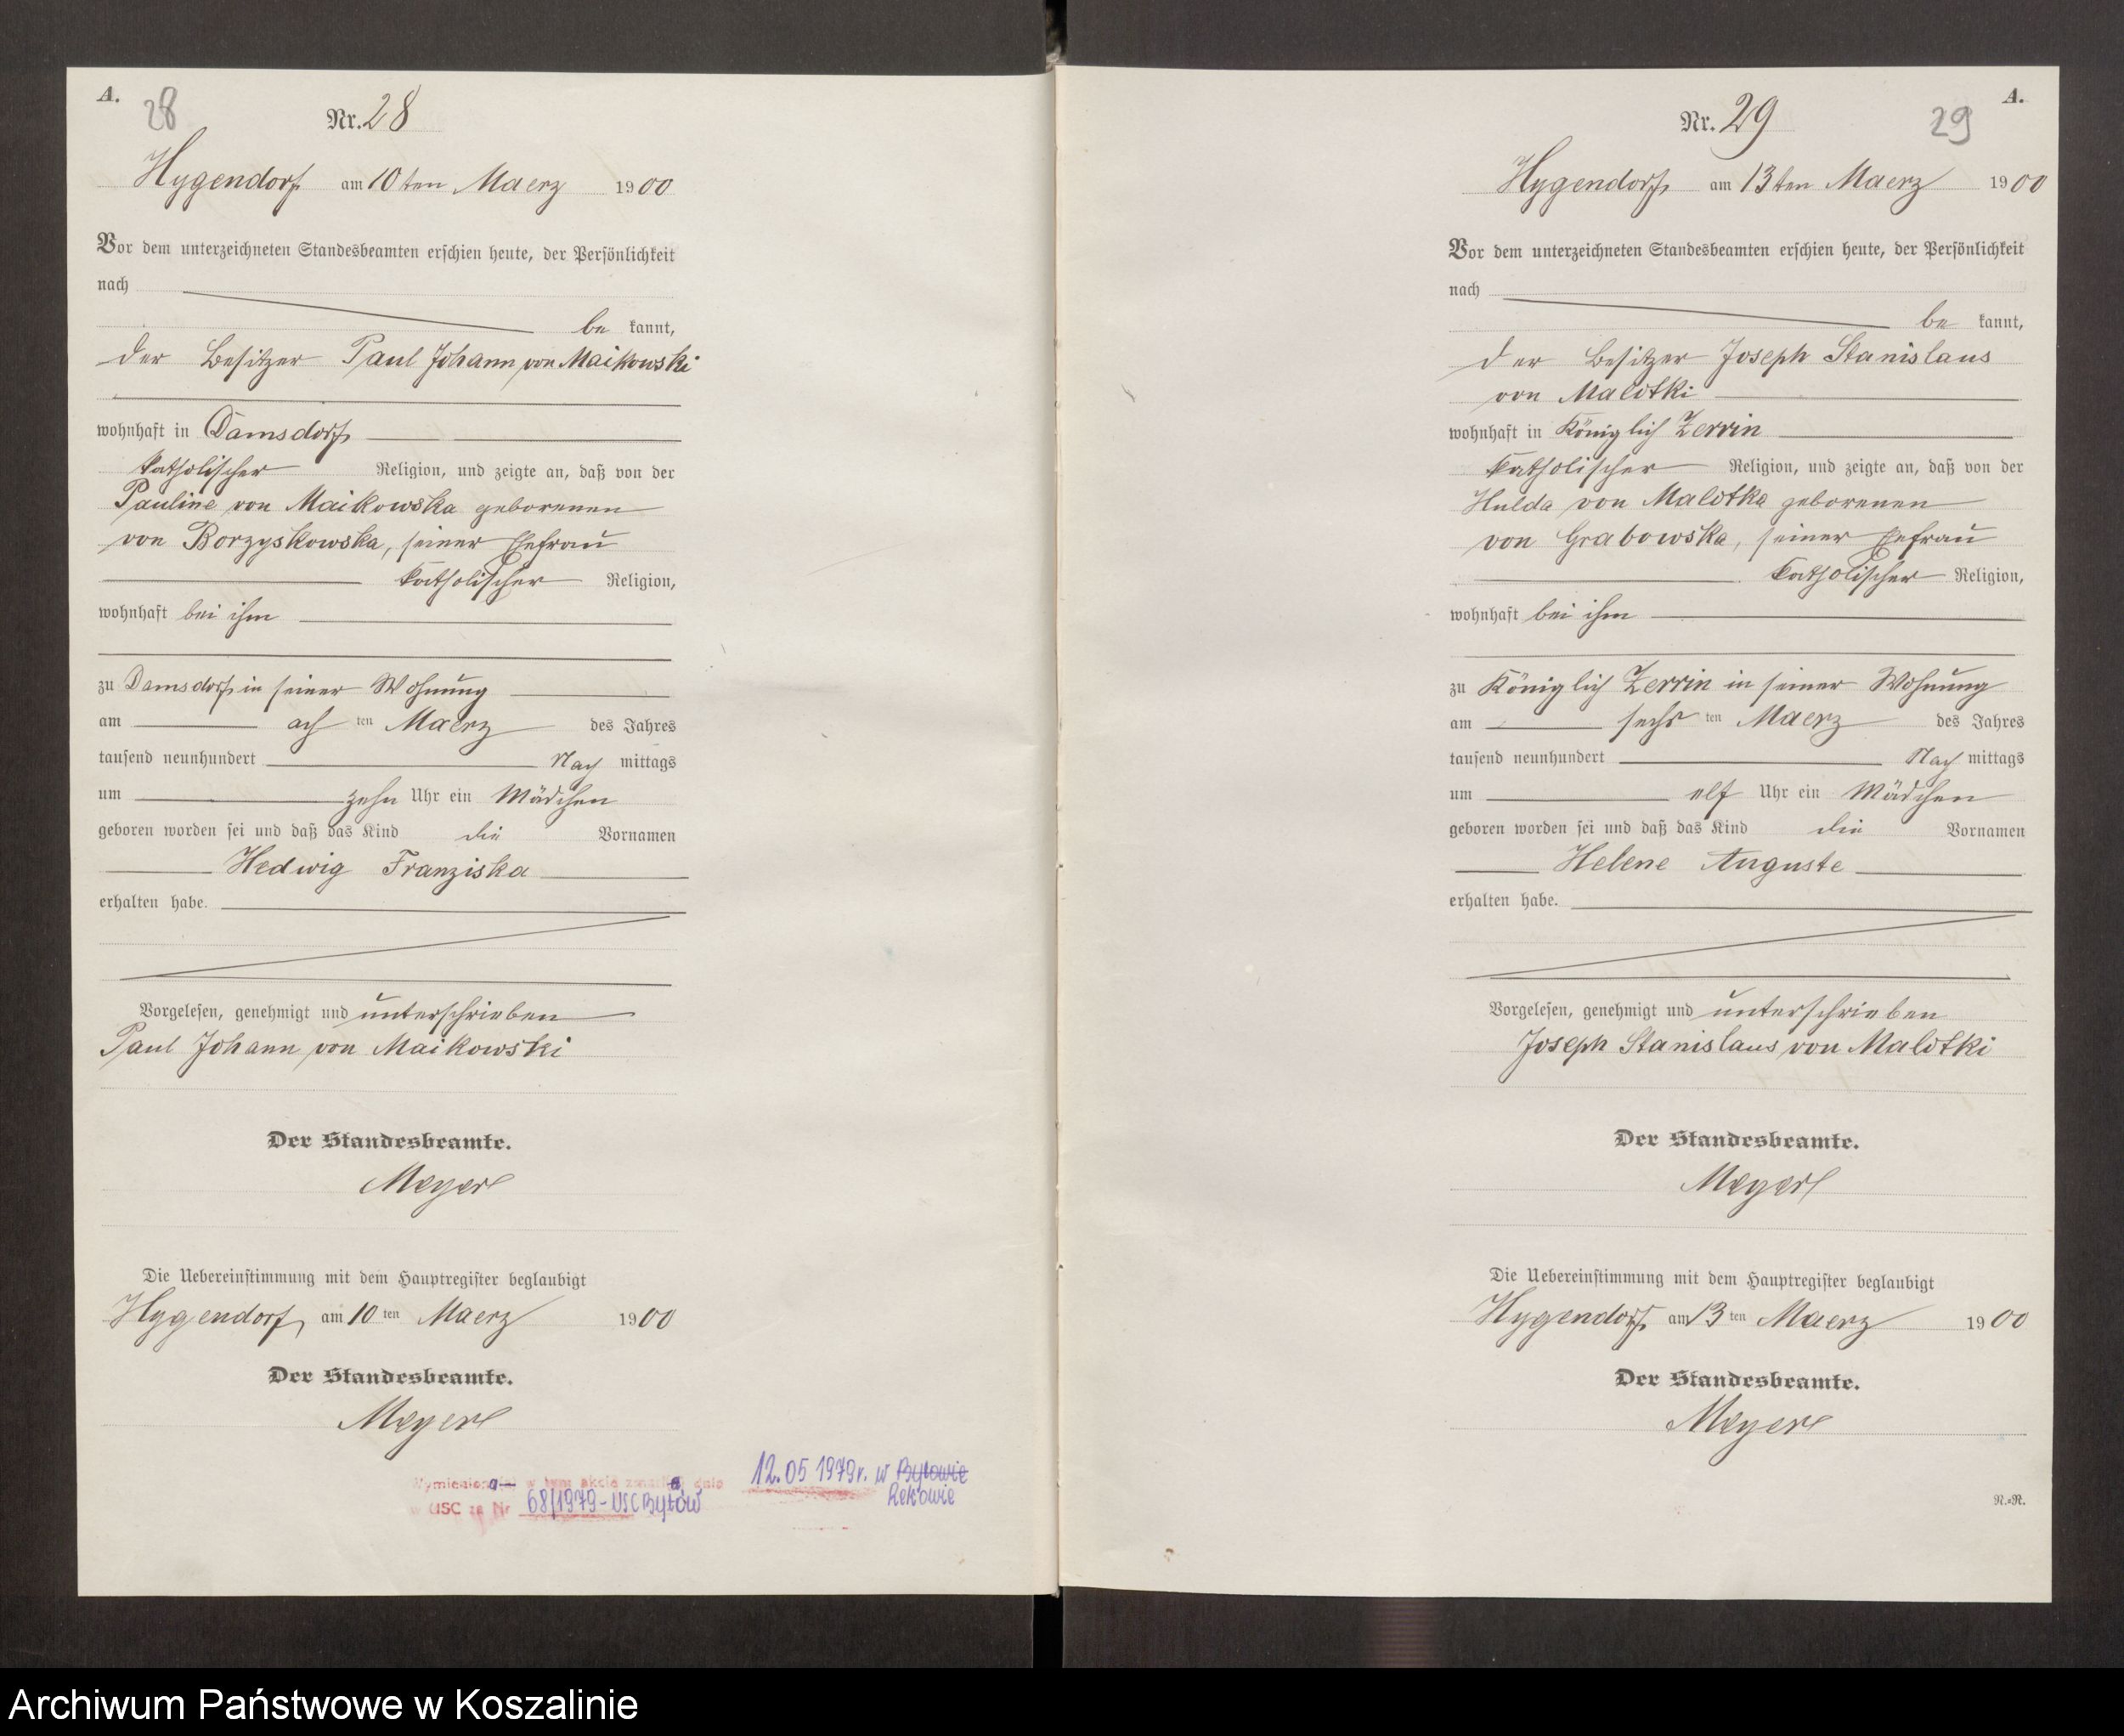 A.
28
Nr. 28
Hygendorf am 10ten Maerz 1900
Vor dem unterzeichneten Standesbeamten erschien heute, der Persönlichkeit
nach
be kannt,
der Besitzer Paul Johann von Maikowski
wohnhaft in Damsdorf
katholischer Religion, und zeigte an, daß von der
Pauline von Maikowska geborenen
von Borzyskowska, seiner Ehefrau
katholischer Religion,
wohnhaft bei ihm
zu Damsdorf in seiner Wohnung
am ach ten Maerz des Jahres
tausend neunhundert Nach mittags
um zehn Uhr ein Mädchen
geboren worden sei und daß das Kind die Vornamen
Hedwig Franziska
erhalten habe.
Vorgelesen, genehmigt und unterschrieben
Paul Johann von Maikowski
Der Standesbeamte.
Meyer
Die Uebereinstimmung mit dem Hauptregister beglaubigt
Hygendorf, am 10 ten Maerz 1900
Der Standesbeamte.
Meyer
Wymieniona w tym akcie zmarła dnia 12.05 1979r. w Bytowie
Rekowie
w USC za Nr 68/1979-USC Bytów
A.
29
Nr. 29
Hygendorf am 13ten Maerz 1900
Vor dem unterzeichneten Standesbeamten erschien heute, der Persönlichkeit
nach
be kannt,
der Besitzer Joseph Stanislaus
von Malotki
wohnhaft in Königlich Zerrin
katholischer Religion, und zeigte an, daß von der
Hulda von Malotka geborenen
von Grabowska, seiner Ehefrau
katholischer Religion,
wohnhaft bei ihm
zu Königlich Zerrin in seiner Wohnung
am sechs ten Maerz des Jahres
tausend neunhundert Nach mittags
um elf Uhr ein Mädchen
geboren worden sei und daß das Kind die Vornamen
Helene Auguste
erhalten habe.
Vorgelesen, genehmigt und unterschrieben
Joseph Stanislaus von Malotki
Der Standesbeamte.
Meyer
Die Uebereinstimmung mit dem Hauptregister beglaubigt
Hygendorf, am 13 ten Maerz 1900
Der Standesbeamte.
Meyer
N.=N.
Archiwum Państwowe w Koszalinie